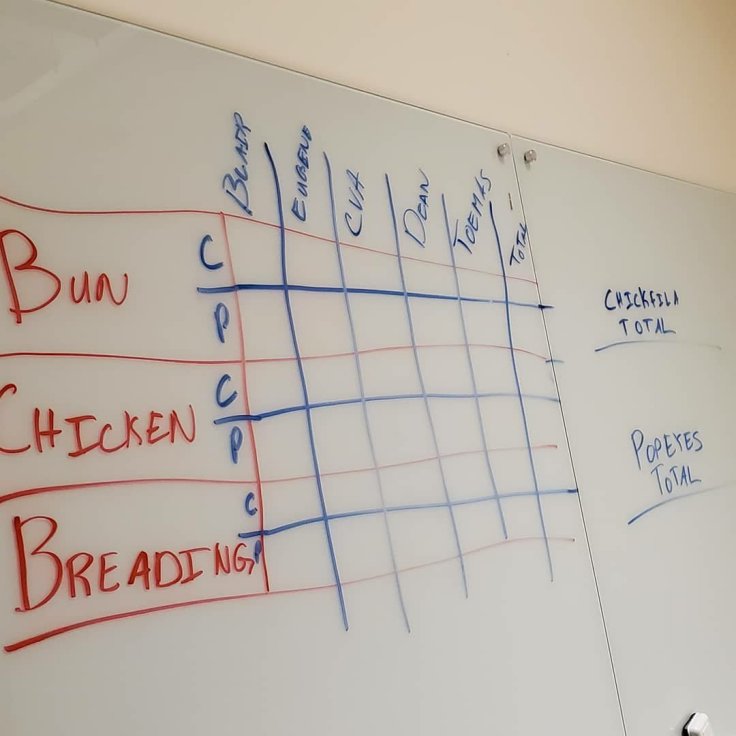 EUGENE
CVA
DEAN
TOTAL
BUN
C
P
CHICKEN
C
P
BREADING,
C
P
CHICKFILA
TOTAL
POPEYES
TOTAL